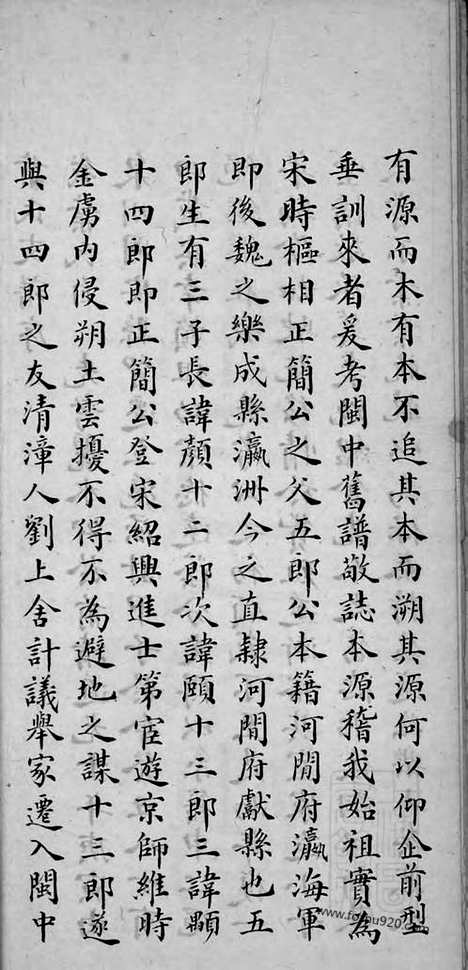 有源而木有本不追其本而溯其源何以仰企前型
垂訓來者爰考閩中舊譜敬誌本源稽我始祖實為
宋時樞相正簡公之父五郎公本籍河間府瀛海軍
即後魏之樂成縣瀛洲今之直隸河間府獻縣也五
郎生有三子長諱顏十二郎次諱頤十三郎三諱顒
十四郎即正簡公登宋紹興進士第宦遊京師維時
金虜內侵朔土雲擾不得不為避地之謀十三郎遂
與十四郎之友清漳人劉上舍計議舉家遷入閩中